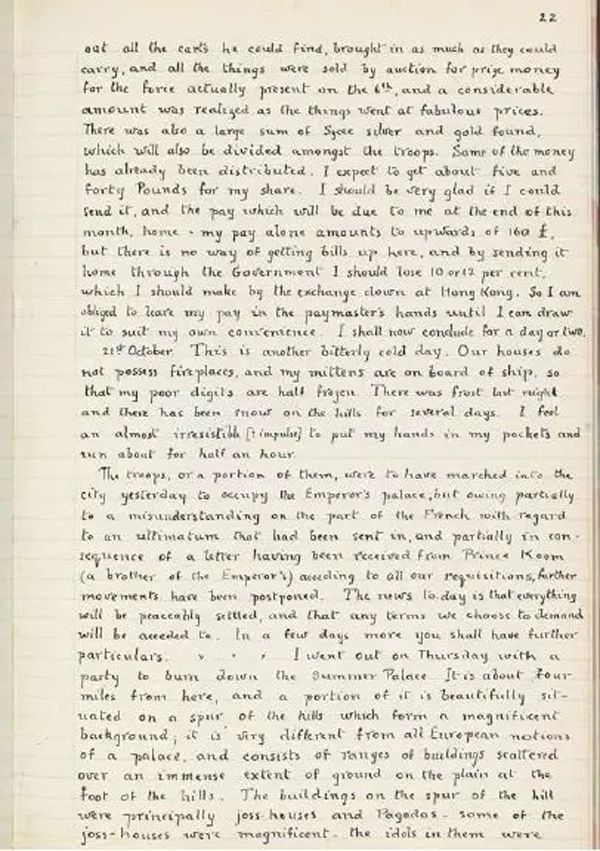 22
out all the carts he could find, brought in as much as they could
carry, and all the things were sold by auction for prize money
for the force actually present on the 6th, and a considerable
amount was realized as the things went at fabulous prices.
There was also a large sum of Sycee silver and gold found,
which will also be divided amongst the troops. Some of the money
has already been distributed. I expect to get about five and
forty Pounds for my share. I should be very glad if I could
send it, and the pay which will be due to me at the end of this
month, home - my pay alone amounts to upwards of 160 £,
but there is no way of getting bills up here, and by sending it
home through the Government I should lose 10 or 12 per cent,
which I should make by the exchange down at Hong Kong. So I am
obliged to leave my pay in the paymaster's hands until I can draw
it to suit my own convenience. I shall now conclude for a day or two.
21st October. This is another bitterly cold day. Our houses do
not possess fireplaces, and my mittens are on board of ship, so
that my poor digits are half frozen. There was frost last night
and there has been snow on the hills for several days. I feel
an almost irresistible [? impulse] to put my hands in my pockets and
run about for half an hour.
The troops, or a portion of them, were to have marched into the
city yesterday to occupy the Emperor's palace, but owing partially
to a misunderstanding on the part of the French with regard
to an ultimatum that had been sent in, and partially in con-
sequence of a letter having been received from Prince Koom
(a brother of the Emperor's) acceding to all our requisitions, further
movements have been postponed. The news to-day is that everything
will be peaceably settled, and that any terms we choose to demand
will be acceded to. In a few days more you shall have further
particulars. I went out on Thursday with a
party to burn down the Summer Palace. It is about four
miles from here, and a portion of it is beautifully sit-
uated on a spur of the hills which form a magnificent
background; it is very different from all European notions
of a palace, and consists of ranges of buildings scattered
over an immense extent of ground on the plain at the
foot of the hills. The buildings on the spur of the hill
were principally joss-houses and Pagodas - some of the
joss-houses were magnificent - the idols in them were